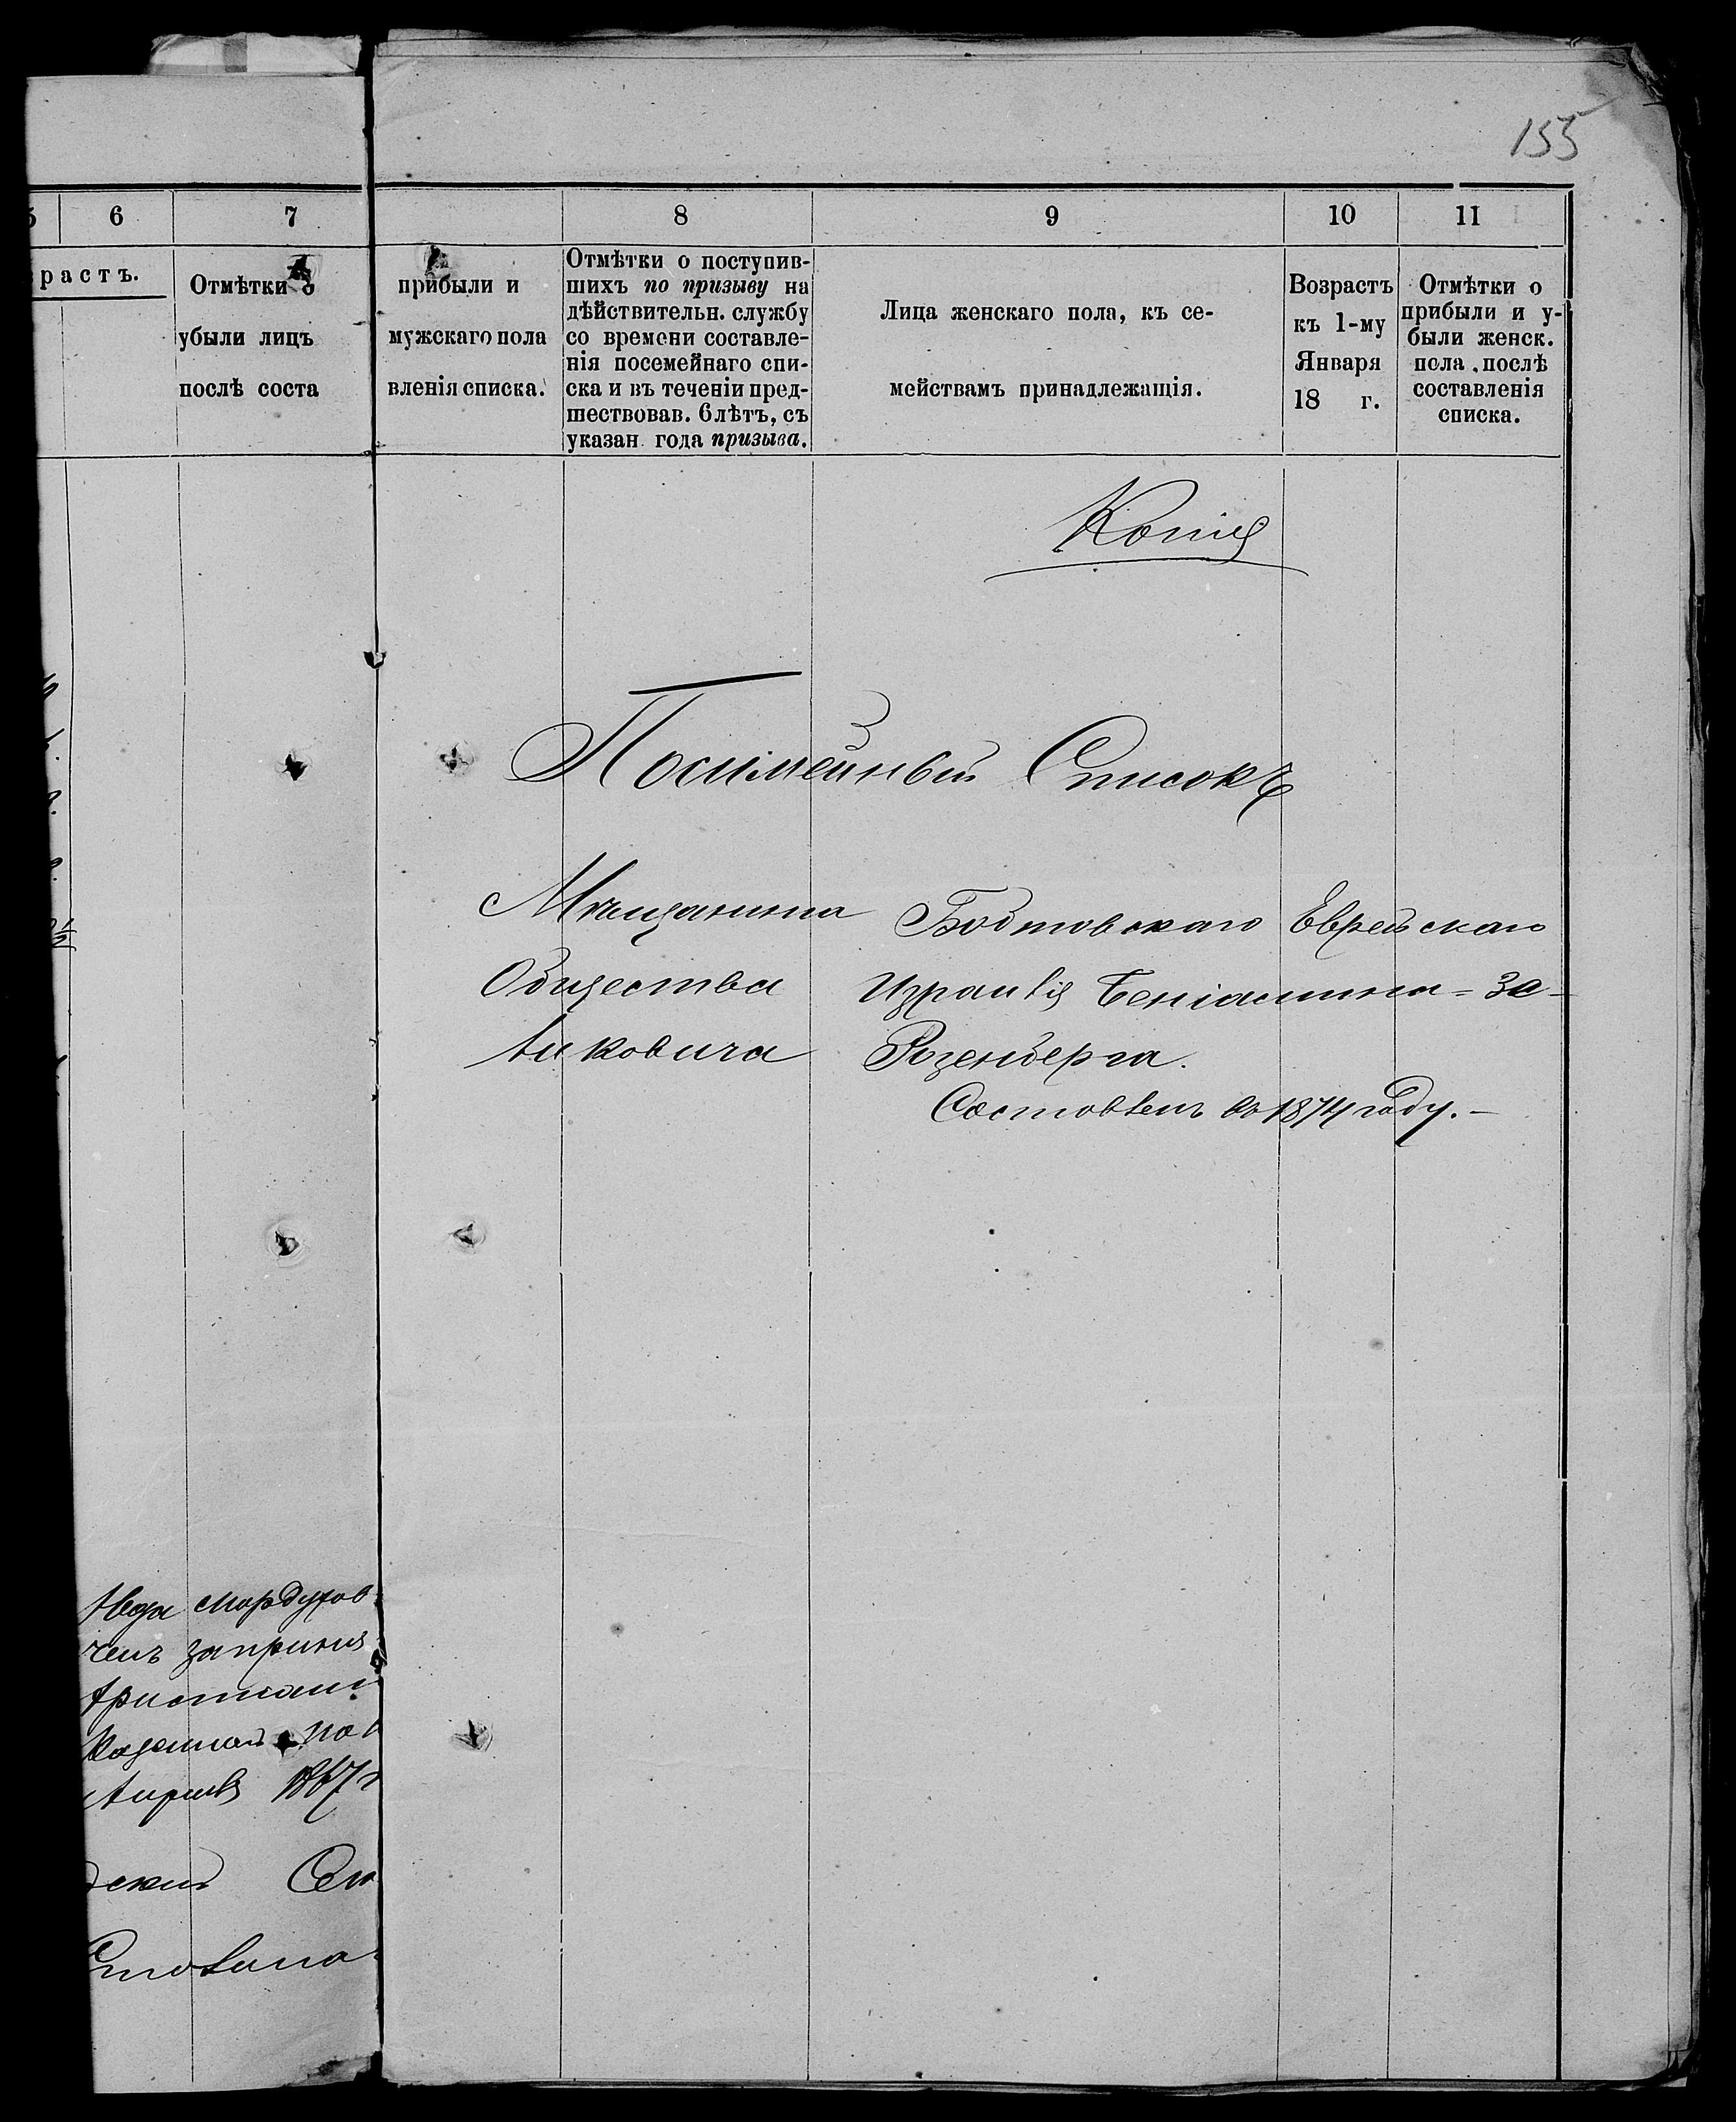 155
6 7 8 9 10 11
растъ.
Отмѣтки о прибыли и
убыли лицъ мужскаго пола
послѣ соста вленія списка.
Отмѣтки о поступив-
шихъ по призыву на
дѣйствительн. службу
со времени составле-
нія посемейнаго спи-
ска и въ теченіи пред-
шествовав. 6 лѣтъ, съ
указан. года призыва.
Лица женскаго пола, къ се-
мействамъ принадлежащія.
Возрастъ
къ 1-му
Января
18 г.
Отмѣтки о
прибыли и у-
были женск.
пола послѣ
составленія
списка.
Копія
Посимейный Списокъ
Мѣщанина Еврейскаго
Общества Израиля Беніамина-Зе-
ликовича Розенберга.
Составленъ въ 1874 году.-
Мордухов
ченъ
по
Апрѣля 1867 г